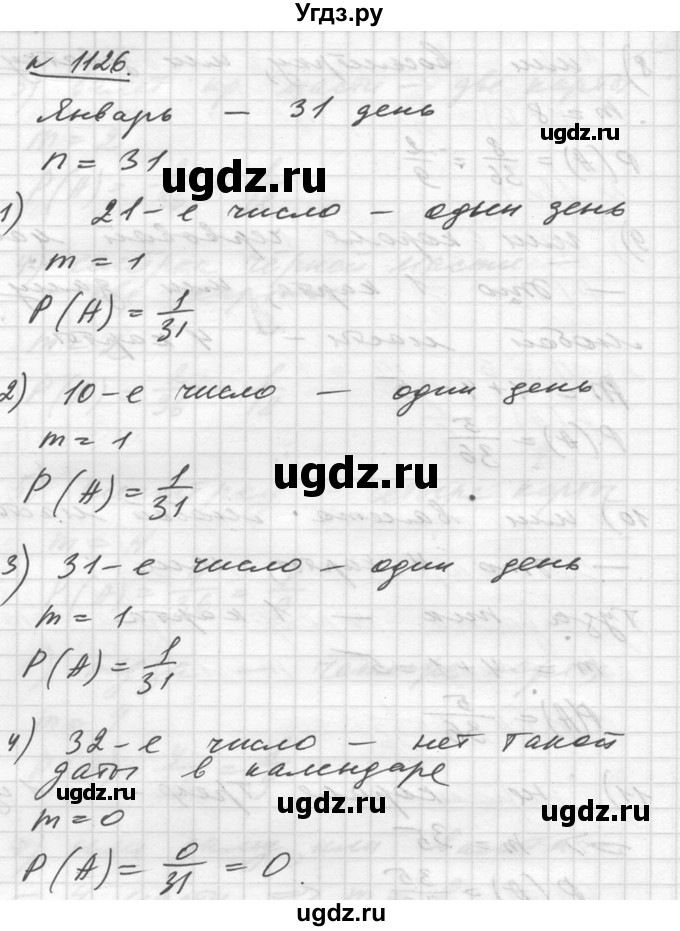 Угдз.ру
№ 1126.
Январь — 31 день
n = 31
ugdz.ru
ugdz.ru
1) 21-е число — один день
m = 1
P(A) = 1/31
ugdz.ru
2) 10-е число — один день
m = 1
P(A) = 1/31
ugdz.ru
3) 31-е число — один день
m = 1
P(A) = 1/31
4) 32-е число — нет такой
даты в календаре
ugdz.ru
ugdz.ru
ugdz.ru
m = 0
P(A) = 0/31 = 0.
ugdz.ru